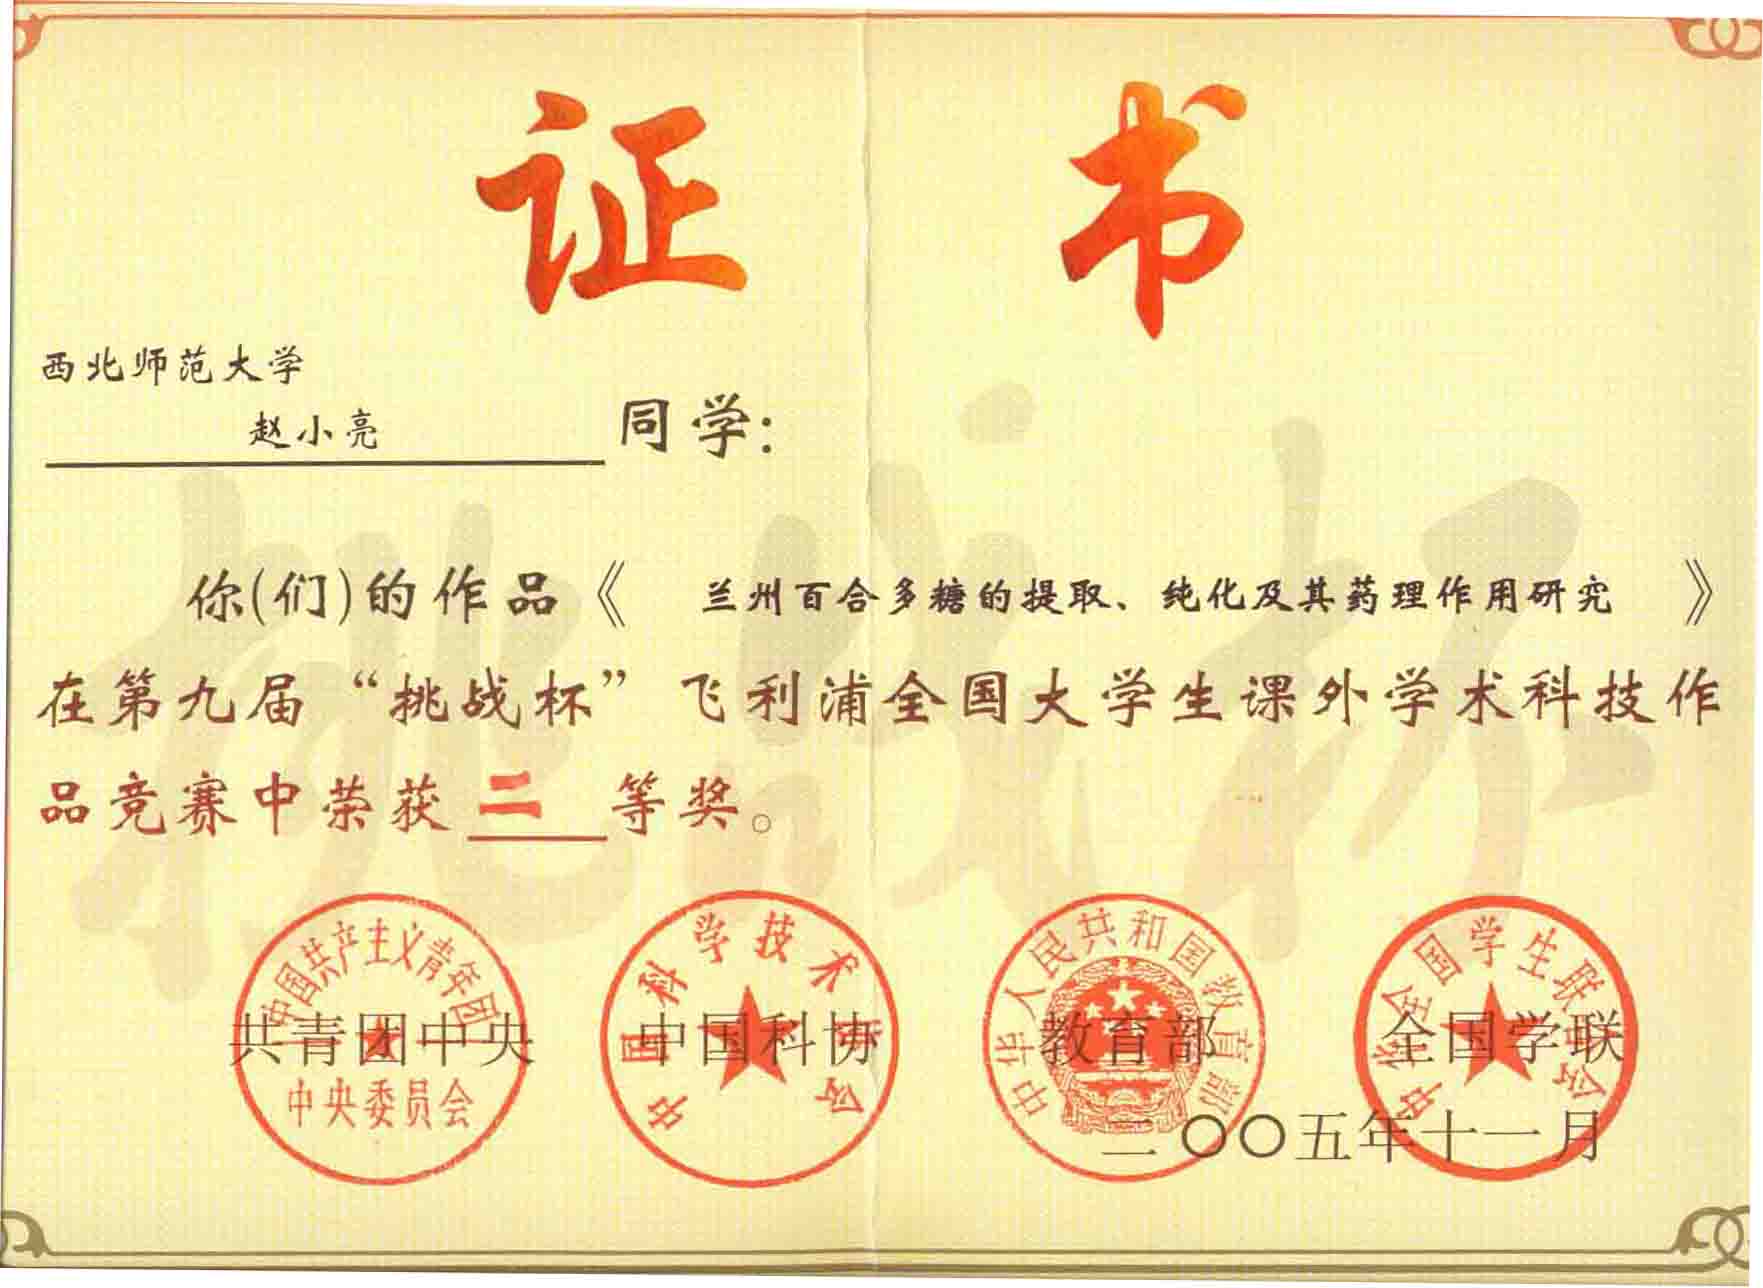 证书
西北师范大学
赵小亮 同学：
你(们)的作品《 兰州百合多糖的提取、纯化及其药理作用研究 》
在第九届“挑战杯”飞利浦全国大学生课外学术科技作
品竞赛中荣获 二 等奖。
挑战杯
中国共产主义青年团
中央委员会
中国科学技术协会
中华人民共和国教育部
中华全国学生联合会
共青团中央 中国科协 教育部 全国学联
二〇〇五年十一月